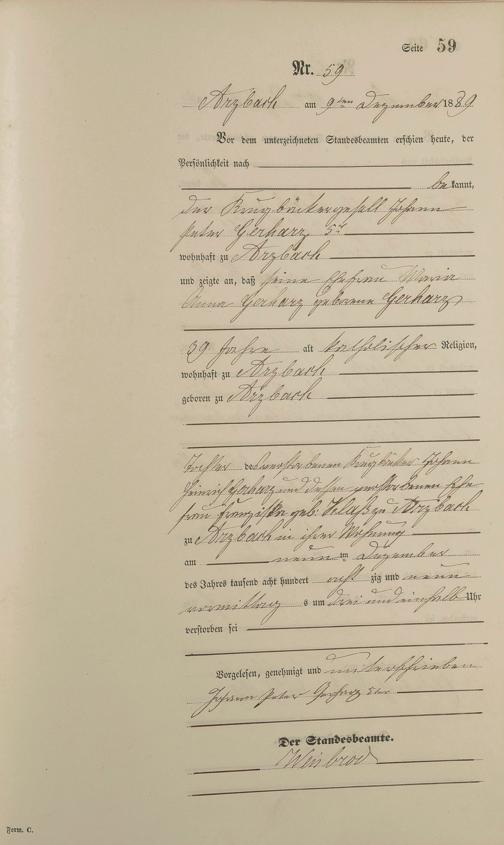 Seite 59
Nr. 59
Arzbach am 9ten Dezember 1889
Vor dem unterzeichneten Standesbeamten erschien heute, der
Persönlichkeit nach
bekannt,
der Krugbäckergesell Johann
Peter Gerharz 5r
wohnhaft zu Arzbach
und zeigte an, daß seine Ehefrau Maria
Anna Gerharz geborene Gerharz
39 Jahre alt katholischer Religion,
wohnhaft zu Arzbach
geboren zu Arzbach
Tochter des verstorbenen Krugbäcker Johann
Heinrich Gerharz und dessen verstorbenen Ehe
frau Franziska geb. Klaß zu Arzbach
zu Arzbach in ihrer Wohnung
am neunten Dezember
des Jahres tausend acht hundert acht zig und neun
vormittags um drei und einhalb Uhr
verstorben sei
Vorgelesen, genehmigt und unterschrieben
Johann Peter Gerharz
Der Standesbeamte.
Weisbrod
Form. C.